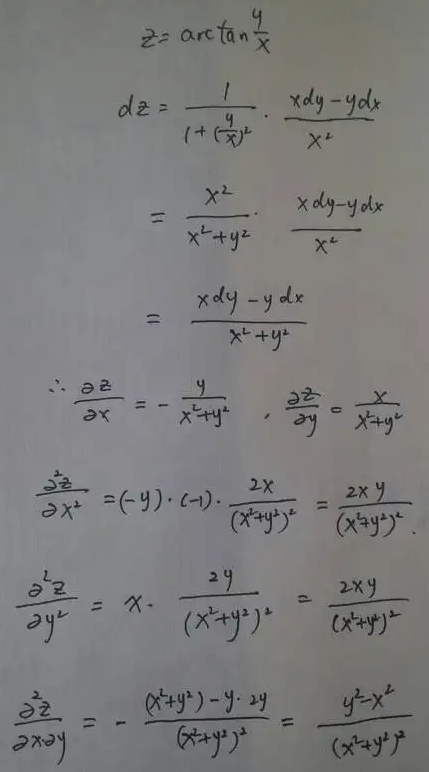 z = arctan y/x
dz = 1/(1+(y/x)²) · (xdy-ydx)/x²
= x²/(x²+y²) · (xdy-ydx)/x²
= (xdy-ydx)/(x²+y²)
∴ ∂z/∂x = - y/(x²+y²) , ∂z/∂y = x/(x²+y²)
∂²z/∂x² = (-y)·(-1)· 2x/(x²+y²)² = 2xy/(x²+y²)² .
∂²z/∂y² = x · 2y/(x²+y²)² = 2xy/(x²+y²)²
∂²z/∂x∂y = - ((x²+y²)-y·2y)/(x²+y²)² = (y²-x²)/(x²+y²)²